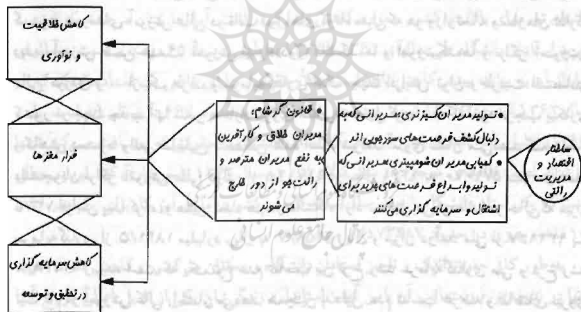 ساختار
اقتصاد و
مدیریت
رانتی
• تولید مدیران کسیزنری: مدیرانی که به
دنبال کشف فرصت‌های سودجویی اند
• کمیابی مدیران شومپیتری: مدیرانی که
تولید و ابداع فرصت‌های جدید برای
اشتغال و سرمایه گذاری می‌کنند
• قانون گرشام:
مدیران خلاق و کارآفرین
به نفع مدیران مترصد و
رانت‌جو از دور خارج
می‌شوند
کاهش خلاقیت
و نوآوری
فرار مغزها
کاهش سرمایه گذاری
در تحقیق و توسعه